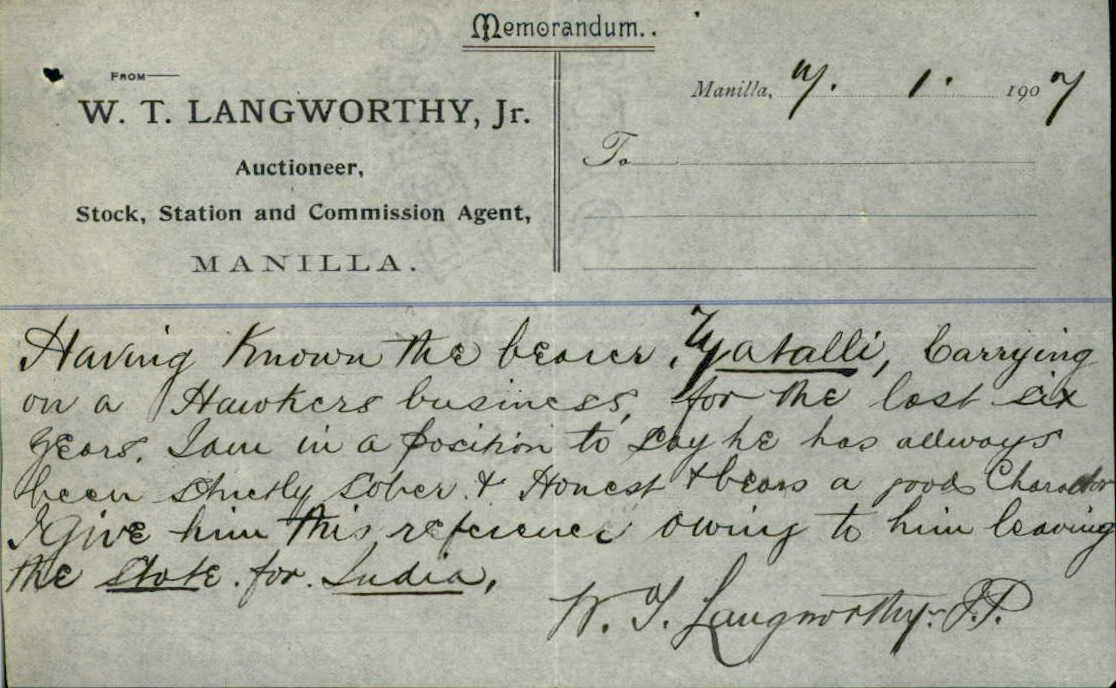 Memorandum..
FROM
W. T. LANGWORTHY, Jr.
Auctioneer,
Stock, Station and Commission Agent,
MANILLA.
Manilla, 7. 1. 1907
To
Having Known the bearer, Yatalli, Carrying
on a Hawkers business, for the last six
years. I am in a position to say he has allways
been strictly sober & Honest & bears a good Character
I Give him this reference owing to him leaving
the State. for. India,
W. T. Langworthy J.P.